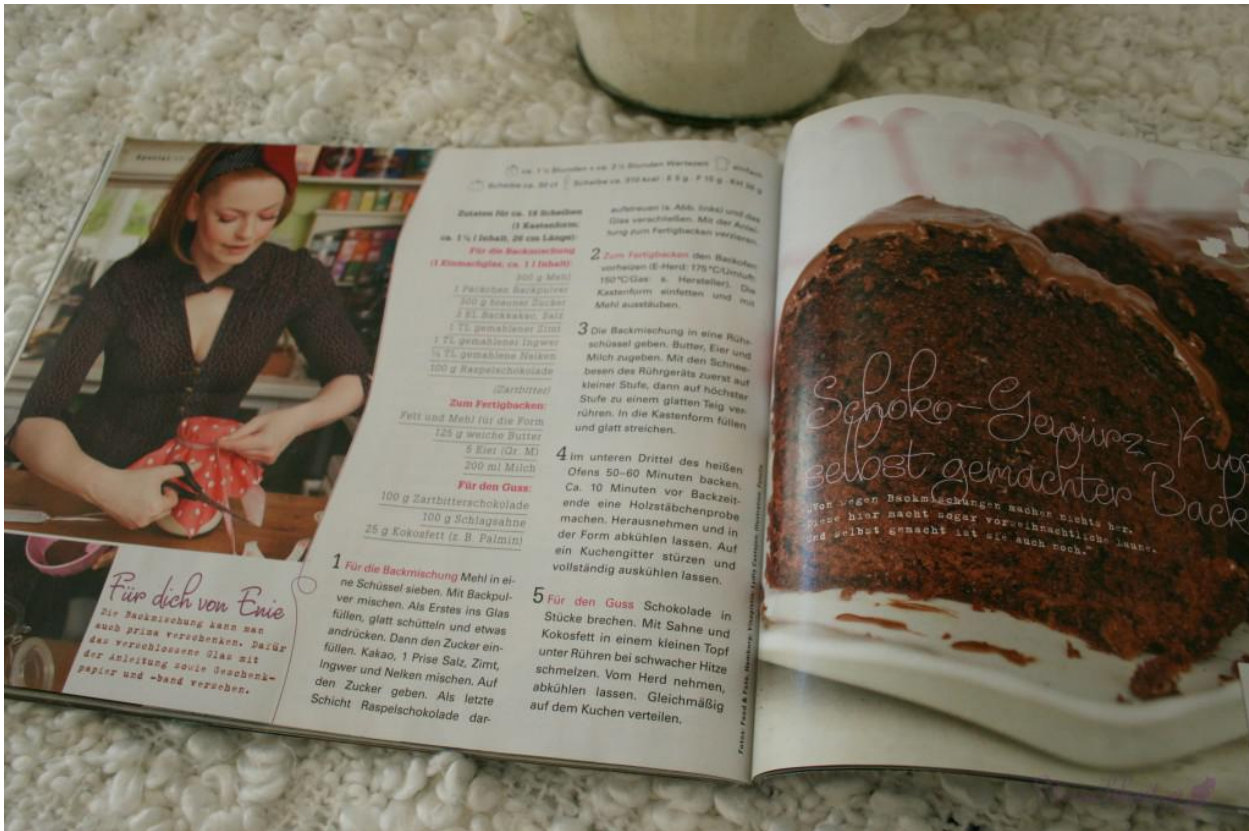 Special
ca. 1 ½ Stunden + ca. 2 ½ Stunden Wartezeit einfach
Scheibe ca. 50 ct Scheibe ca. 310 kcal · E 5 g · F 15 g · KH
Zutaten für ca. 16 Scheiben
(1 Kastenform;
ca. 1 ½ l Inhalt, 26 cm Länge):
Für die Backmischung
(1 Einmachglas; ca. 1 l Inhalt):
300 g Mehl
1 Päckchen Backpulver
300 g brauner Zucker
3 EL Backkakao, Salz
1 TL gemahlener Zimt
1 TL gemahlener Ingwer
¼ TL gemahlene Nelken
100 g Raspelschokolade
(Zartbitter)
Zum Fertigbacken:
Fett und Mehl für die Form
125 g weiche Butter
5 Eier (Gr. M)
200 ml Milch
Für den Guss:
100 g Zartbitterschokolade
100 g Schlagsahne
25 g Kokosfett (z. B. Palmin)
1 Für die Backmischung Mehl in ei-
ne Schüssel sieben. Mit Backpul-
ver mischen. Als Erstes ins Glas
füllen, glatt schütteln und etwas
andrücken. Dann den Zucker ein-
füllen. Kakao, 1 Prise Salz, Zimt,
Ingwer und Nelken mischen. Auf
den Zucker geben. Als letzte
Schicht Raspelschokolade dar-
aufstreuen (s. Abb. links) und das
Glas verschließen. Mit der Anlei-
tung zum Fertigbacken verzieren.
2 Zum Fertigbacken den Backofen
vorheizen (E-Herd: 175 °C/Umluft:
150 °C/Gas: s. Hersteller). Die
Kastenform einfetten und mit
Mehl ausstäuben.
3 Die Backmischung in eine Rühr-
schüssel geben. Butter, Eier und
Milch zugeben. Mit den Schnee-
besen des Rührgeräts zuerst auf
kleiner Stufe, dann auf höchster
Stufe zu einem glatten Teig ver-
rühren. In die Kastenform füllen
und glatt streichen.
4 Im unteren Drittel des heißen
Ofens 50–60 Minuten backen.
Ca. 10 Minuten vor Backzeit-
ende eine Holzstäbchenprobe
machen. Herausnehmen und in
der Form abkühlen lassen. Auf
ein Kuchengitter stürzen und
vollständig auskühlen lassen.
5 Für den Guss Schokolade in
Stücke brechen. Mit Sahne und
Kokosfett in einem kleinen Topf
unter Rühren bei schwacher Hitze
schmelzen. Vom Herd nehmen,
abkühlen lassen. Gleichmäßig
auf dem Kuchen verteilen.
Für dich von Enie
Die Backmischung kann man
auch prima verschenken. Dafür
das verschlossene Glas mit
der Anleitung sowie Geschenk-
papier und -band versehen.
Fotos: Food & Foto, Hamburg;
Schoko-Gewürz-K
selbst gemachter Back
"Von wegen Backmischungen machen nichts her.
Diese hier macht sogar vorweihnachtliche Laune.
Und selbst gemacht ist sie auch noch."